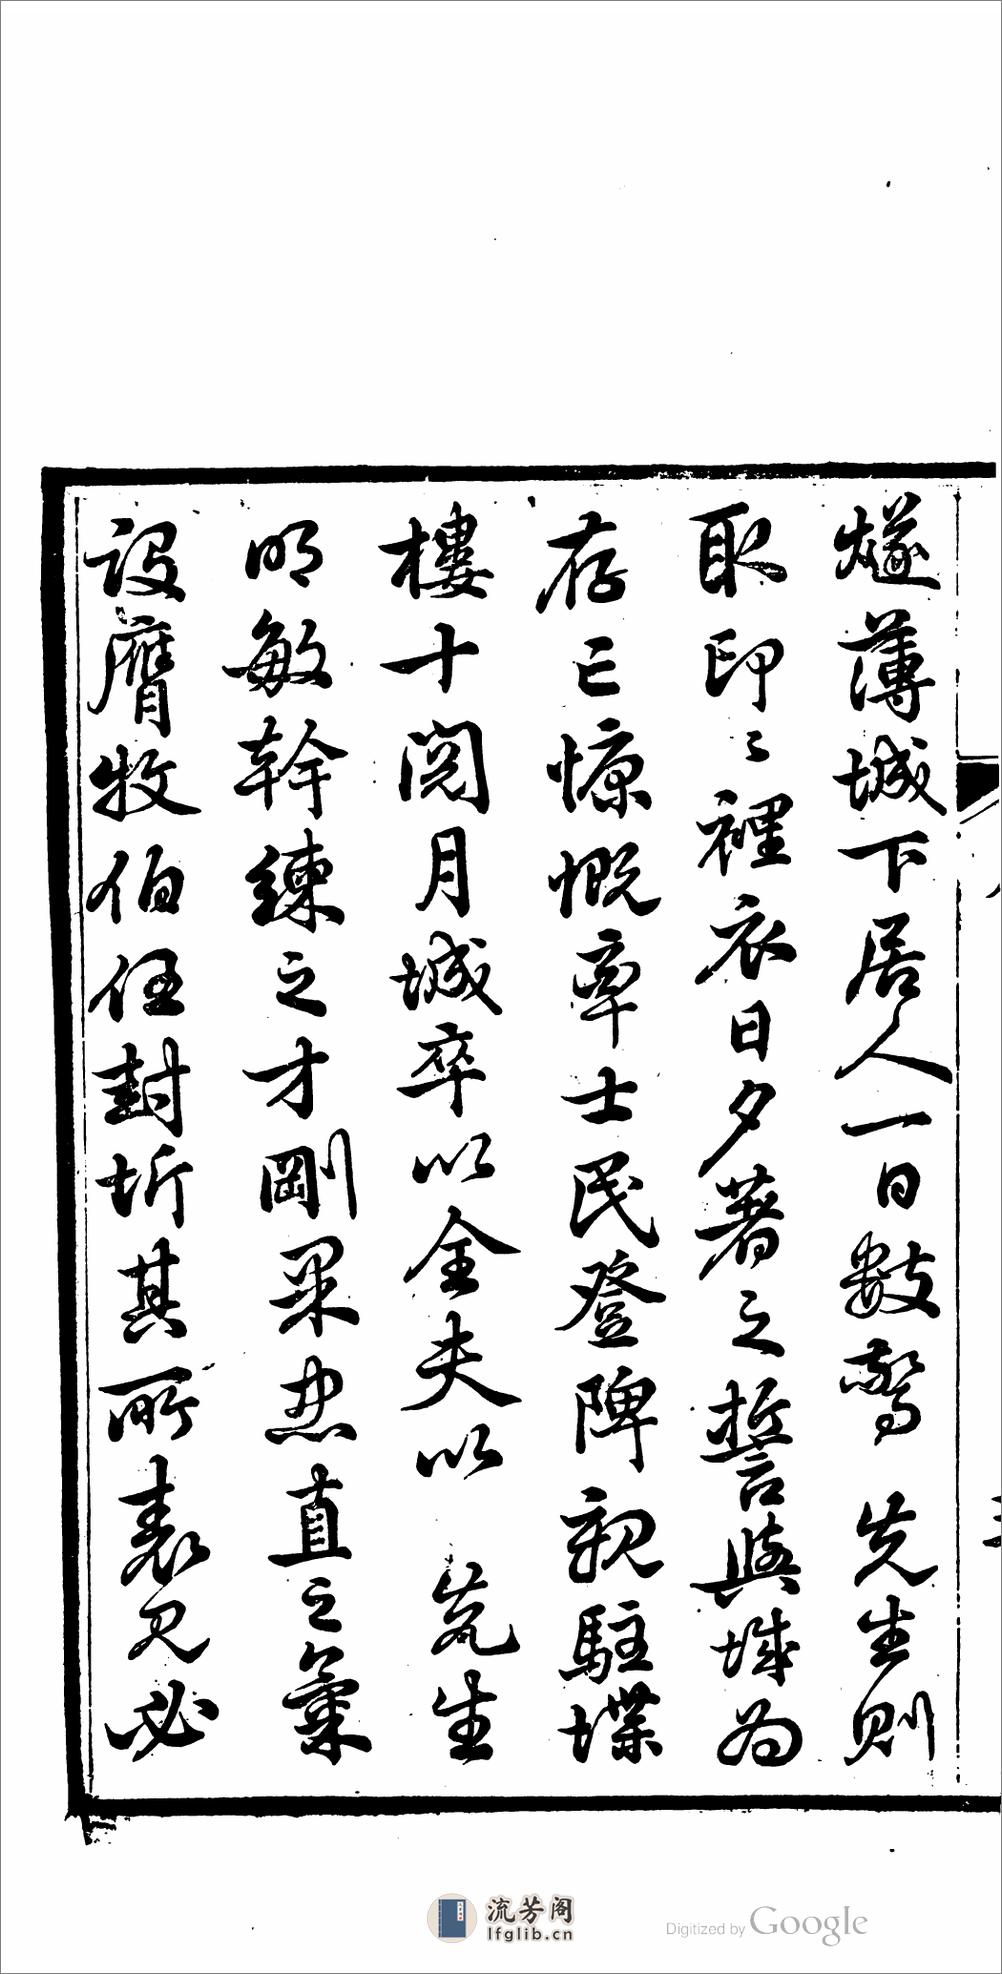 燧薄城下居人一日數驚　先生則
取印之裡衣日夕著之誓與城為
存亡慷慨率士民登陴親駐堞
樓十閱月城卒以全夫以　先生
明敏幹練之才剛果忠直之氣
設膺牧伯任封圻其所表見必
流芳阁
lfglib.cn
Digitized by Google